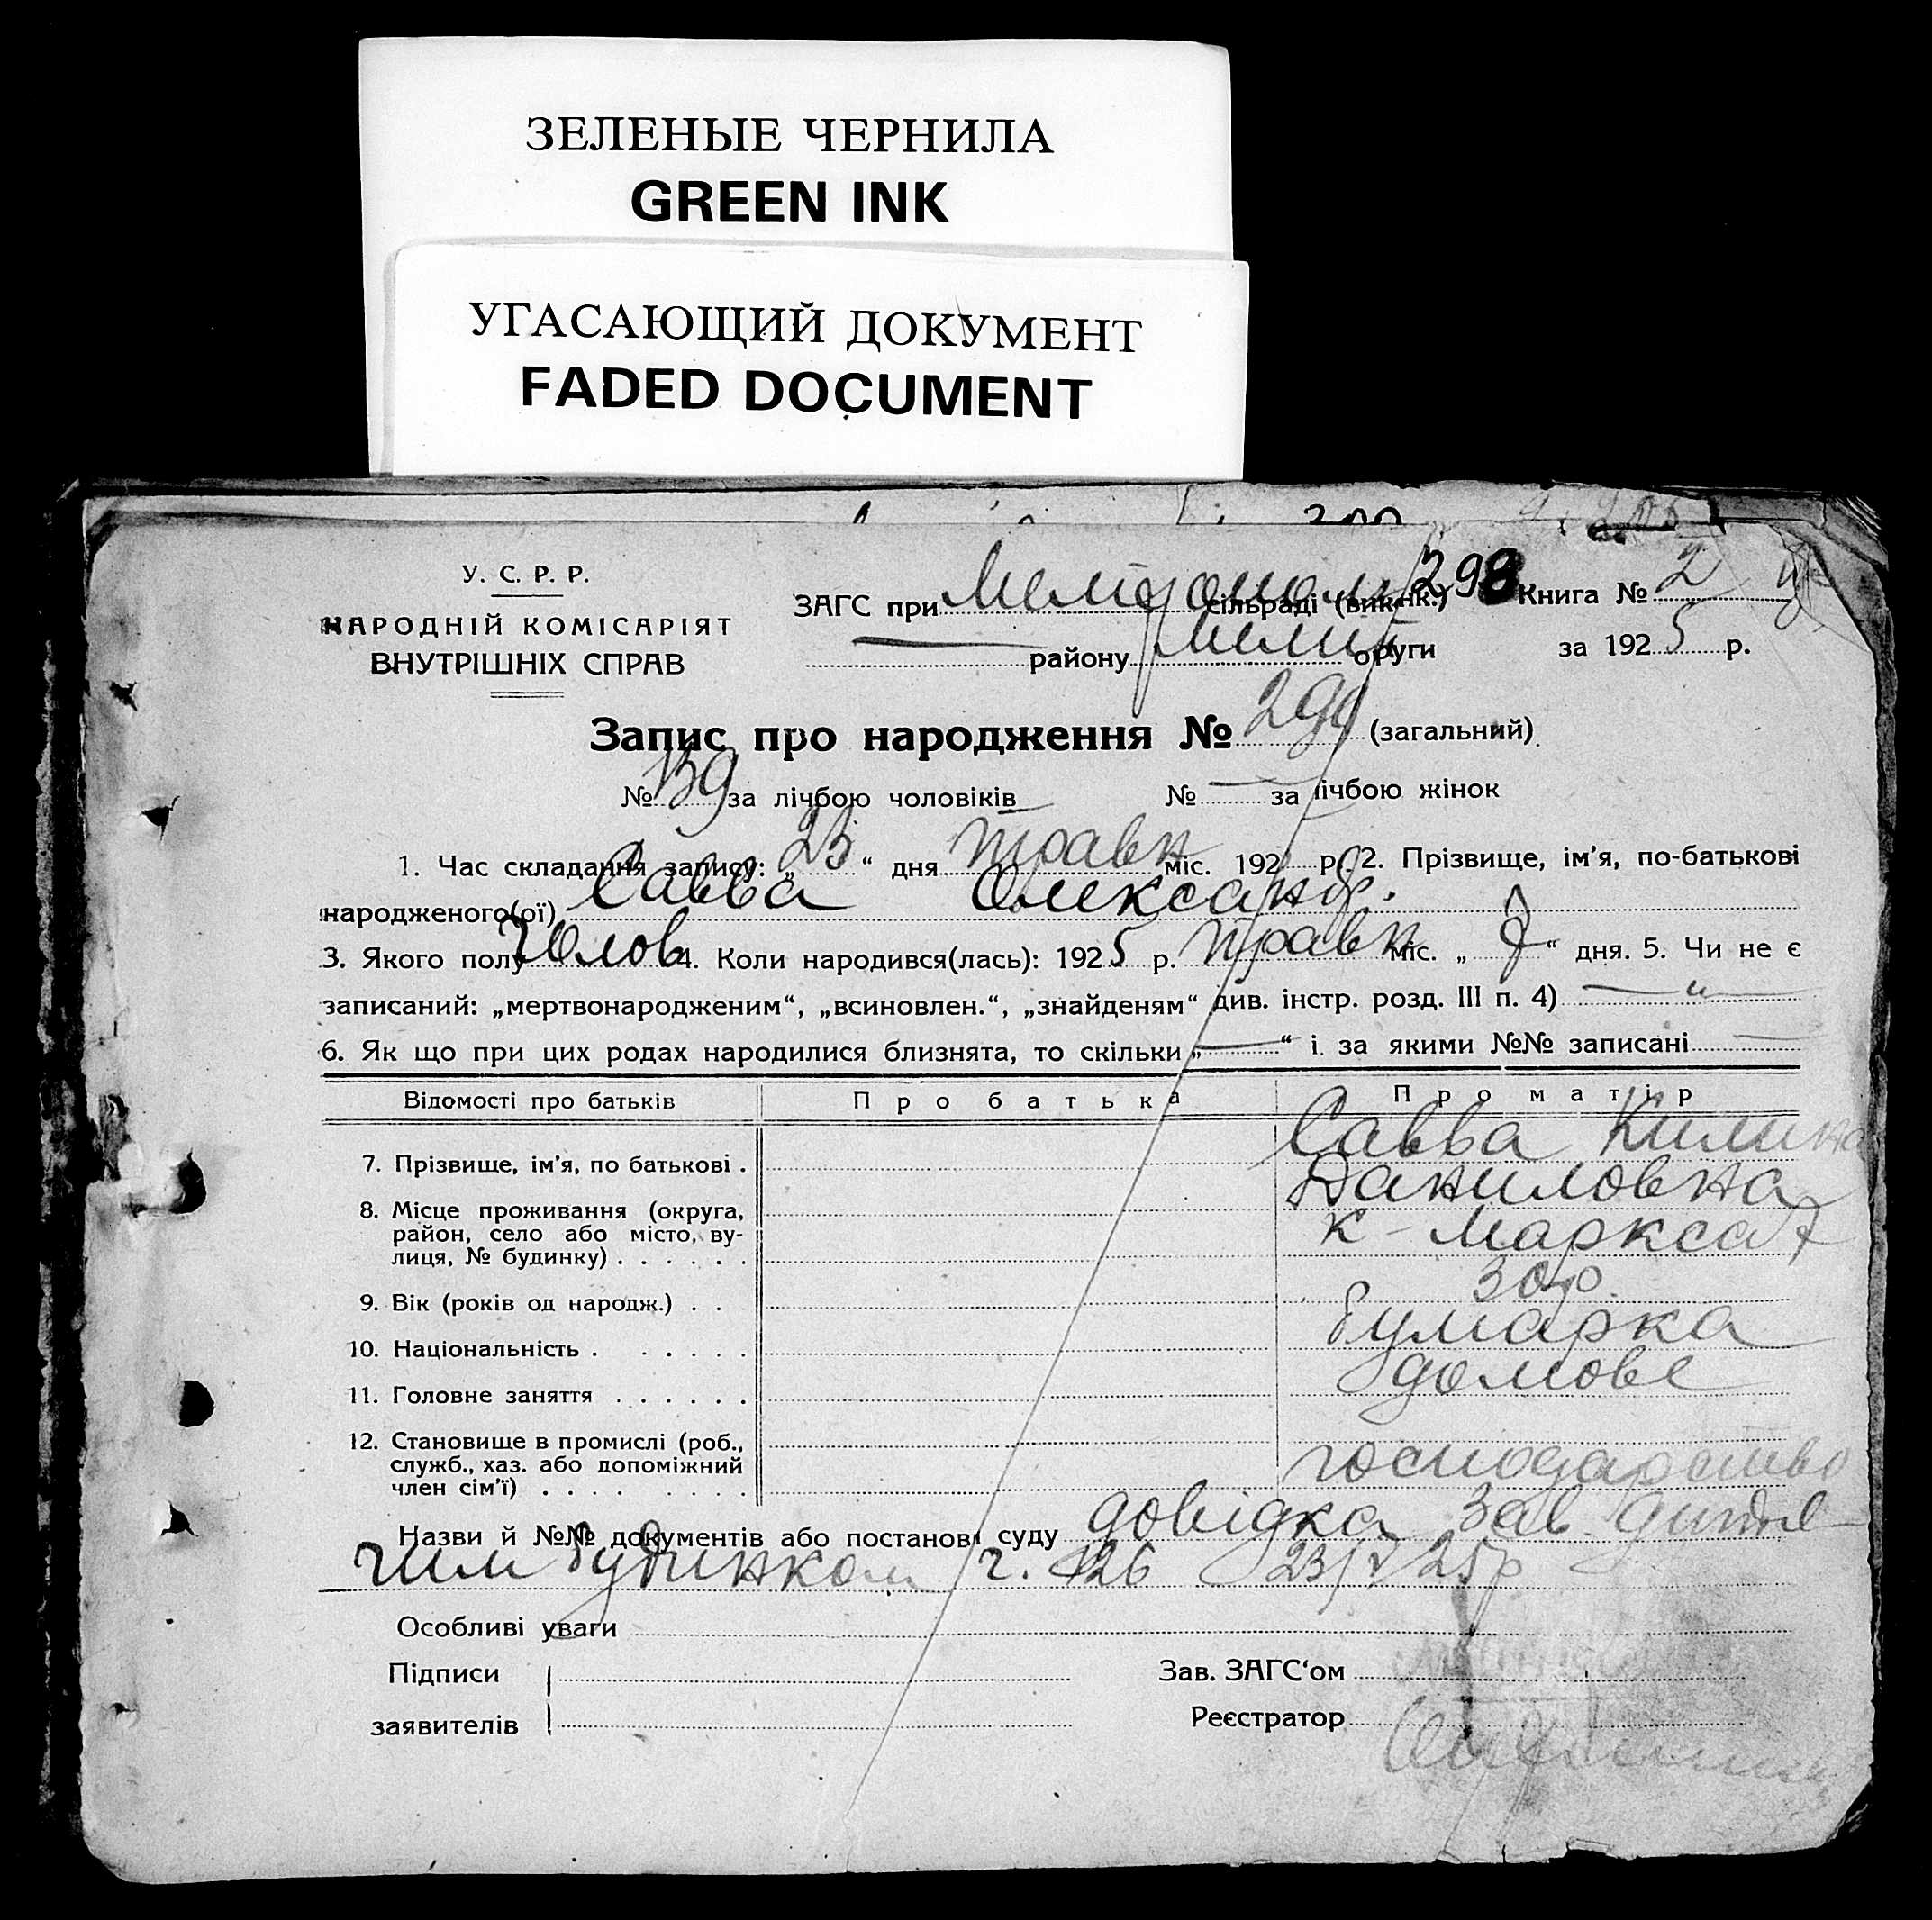 ЗЕЛЕНЫЕ ЧЕРНИЛА
GREEN INK
УГАСАЮЩИЙ ДОКУМЕНТ
FADED DOCUMENT
У. С. Р. Р.
НАРОДНІЙ КОМІСАРІЯТ
ВНУТРІШНІХ СПРАВ
ЗАГС при сільраді (викнк.) 298 Книга № 2
району Мелит округи за 1925 р.
Запис про народження № (загальний)
№ 139 за лічбою чоловіків № — за лічбою жінок
1. Час складання запису: „23“ дня травн міс. 192 р. 2. Прізвище, ім'я, по-батькові
народженого(ої) Савва Олександр.
3. Якого полу Чолов 4. Коли народився(лась): 1925 р. травн міс. „7“ дня. 5. Чи не є
записаний: „мертвонародженим“, „всиновлен.“, „знайденям“ див. інстр. розд. III п. 4) — „ —
6. Як що при цих родах народилися близнята, то скільки „—“ і за якими №№ записані —
Відомості про батьків Про батька Про матір
7. Прізвище, ім'я, по батькові . Савва Килина
Даниловна
8. Місце проживання (округа,
район, село або місто, ву-
лиця, № будинку) . . . . . . К - Маркса 7
9. Вік (років од народж.) . . 30 р.
10. Національність . . . . . .
11. Головне заняття . . . . . . домове
12. Становище в промислі (роб.,
служб., хаз. або допоміжний
член сім'ї) . . . . . . . . господарство
Назви й №№ документів або постанов суду довідка Зав. дитя-
чим будинком ч. 126 23/V 25р
Особливі уваги
Підписи Зав. ЗАГС'ом
заявителів Реєстратор